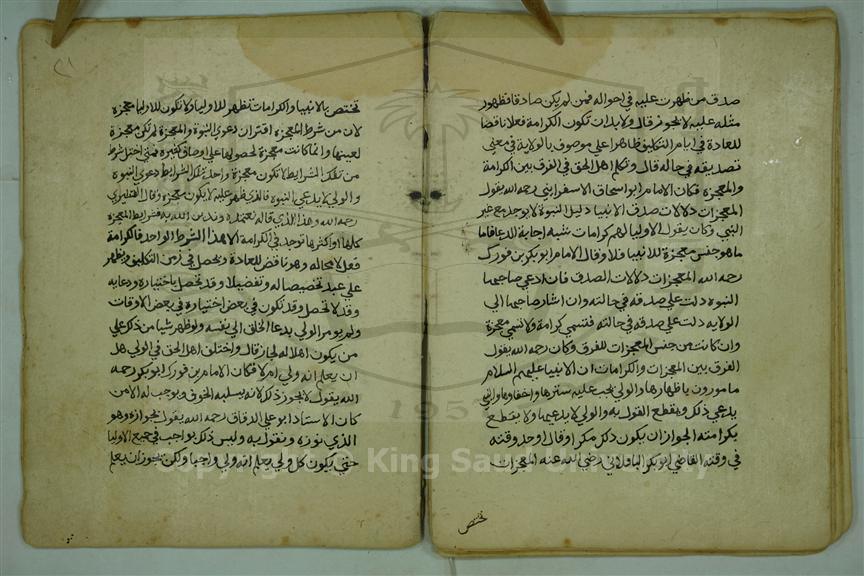 صدق من ظهرت عليه في احواله فمن لم يكن صادقا فظهور
مثله عليه لا يجوز قال ولا بد ان تكون الكرامة فعلا ناقضا
للعادة في ايام التكليف ظاهرا على موصوف بالولاية في معنى
تصديقه في حاله قال وتكلم اهل الحق في الفرق بين الكرامة
والمعجزة فكان الامام ابو اسحاق الاسفرايني رحمه الله يقول
المعجزات دلالات صدق الانبيا ودليل النبوة لا يوجد مع غير
النبي وكان يقول الاوليا لهم كرامات شبه اجابة الدعا فاما
ما هو جنس معجزة للانبيا فلا وقال الامام ابو بكر بن فورك
رحمه الله المعجزات دلالات الصدق فان ادعي صاحبها
النبوة دلت علي صدقه في حالته وان اشار صاحبها الي
الولاية دلت علي صدقه في حالته فتسمي كرامة ولا تسمي معجزة
وان كانت من جنس المعجزات للفرق وكان رحمه الله يقول
الفرق بين المعجزات والكرامات ان الانبيا عليهم السلام
مامورون باظهارها والولي يجب عليه سترها واخفاوها والنبي
يدعي ذلك ويقطع القول به والولي لا يدعيها ولا يقطع
بكرامته لجواز ان يكون ذلك مكرا وقال اوحد وقته
في وقته القاضي ابو بكر الباقلاني رضي الله عنه المعجزات
تختص
تختص بالانبيا والكرامات تظهر للاوليا ولا تكون للاوليا معجزة
لان من شرط المعجزة اقتران دعوي النبوة والمعجزة لم تكن معجزة
لعينها وانما كانت معجزة لحصولها علي اوصاف كثيرة فمتي اختل شرط
من تلك الشرايط لا تكون معجزة واحد تلك الشرايط دعوي النبوة
والولي لا يدعي النبوة فالذي ظهر عليه لا يكون معجزة وقال القشيري
رحمه الله وهذا الذي قاله نعتمده وندين الله به فشرايط المعجزة
كلها او اكثرها توجد في الكرامة الا هذا الشرط الواحد فالكرامة
فعل لا محاله وهو ناقض للعادة ويحصل في زمن التكليف ويظهر
علي عبد تخصيصا له وتفضيلا وقد تحصل باختياره ودعايه
وقد لا تحصل وقد تكون في بعض اختياره في بعض الاوقات
ولم يومر الولي بدعا الخلق الي نفسه ولو ظهر شيا من ذلك علي
من يكون اهلا له لجاز قال واختلف اهل الحق في الولي هل
ان يعلم انه ولي ام لا فكان الامام بن فورك ابو بكر رحمه
الله يقول لا يجوز ذلك لانه يسلبه الخوف ويوجب له الامن
كان الاستاد ابو علي الدقاق رحمه الله يقول بجوازه وهو
الذي نوثره ونقول به وليس ذلك بواجب في جميع الاوليا
حتي يكون كل ولي يعلم انه ولي واجبا ولكن يجوز ان يعلم
Copyright © King Saud University